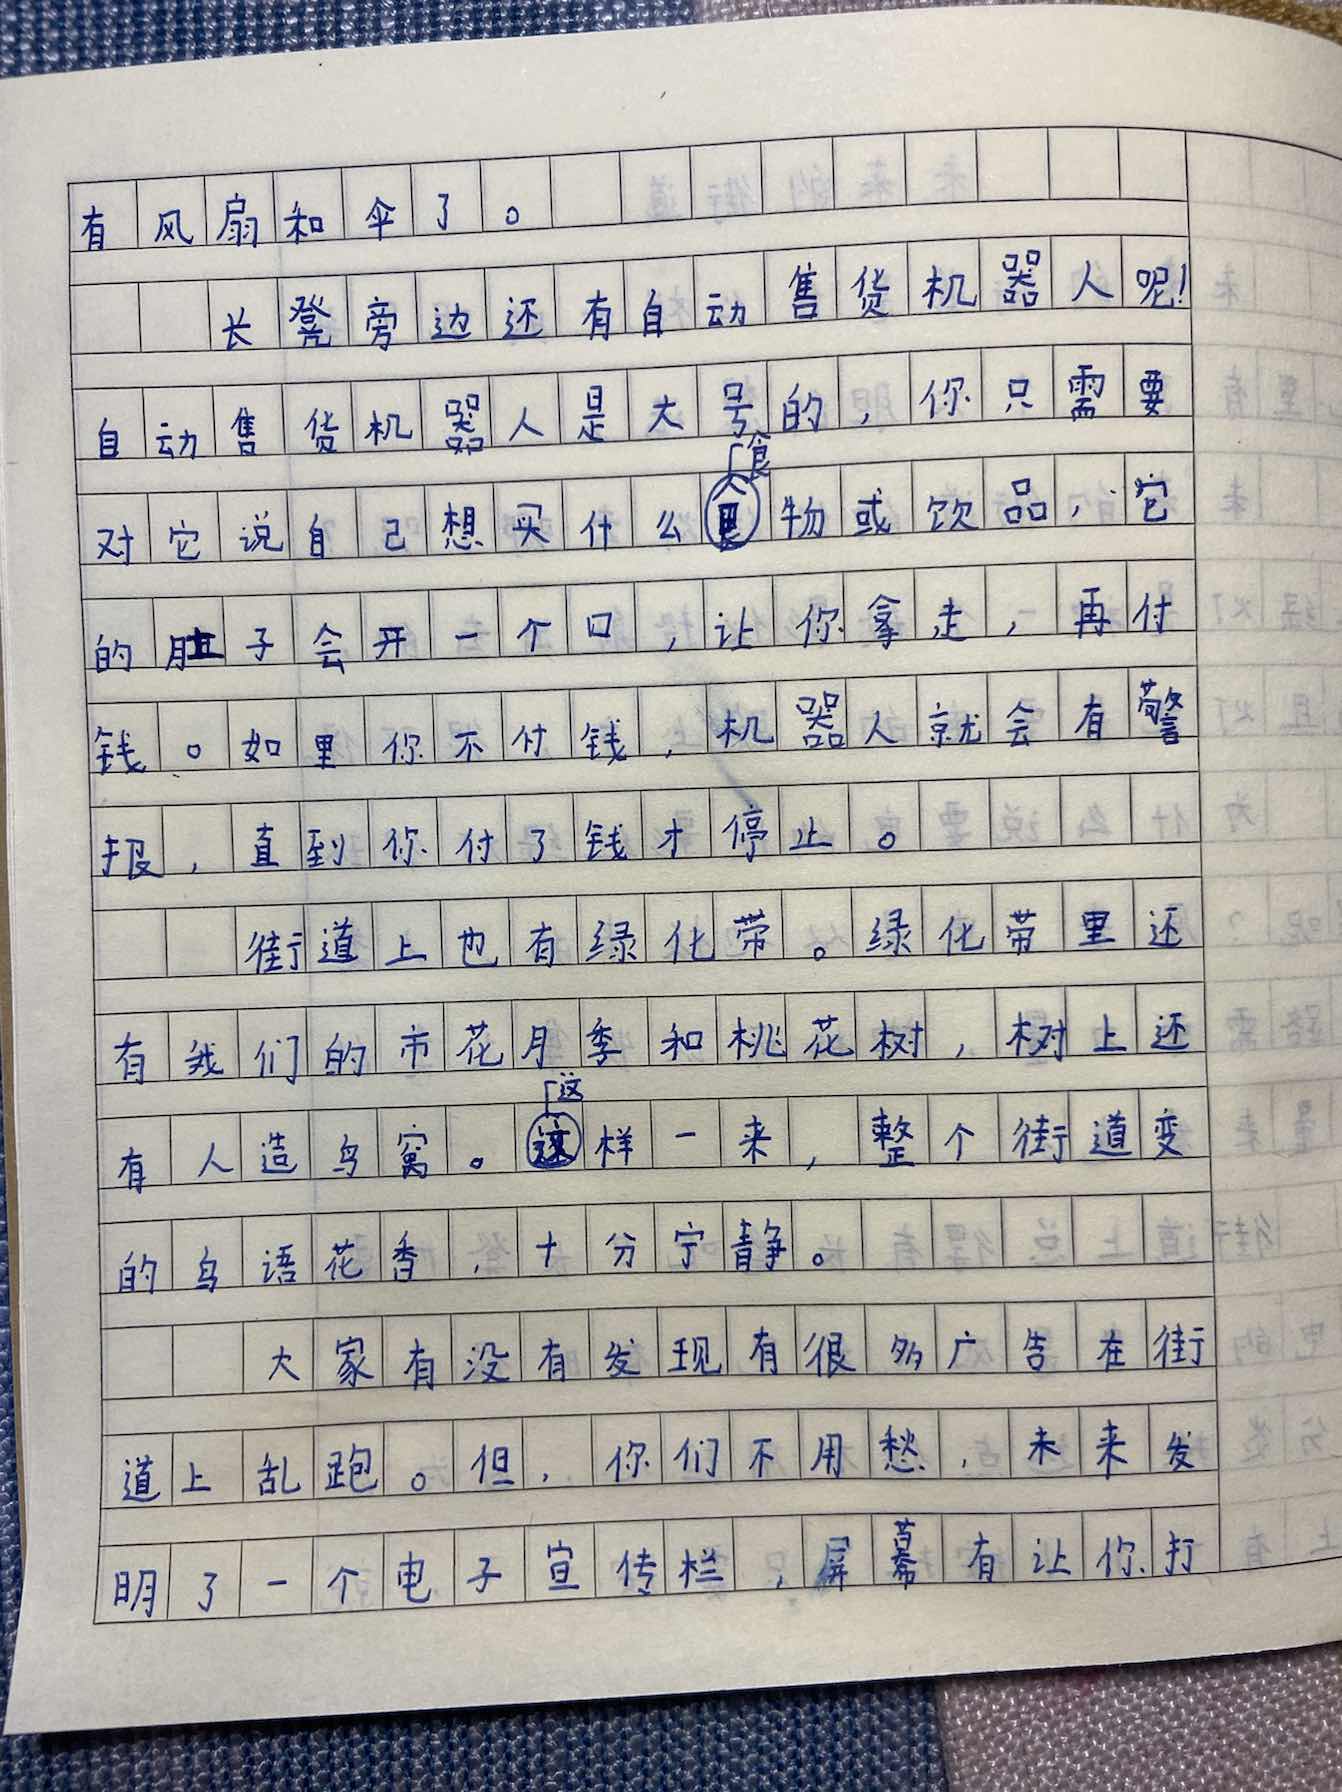 有风扇和伞了。
长凳旁边还有自动售货机器人呢！
自动售货机器人是大号的，你只需要
对它说自己想买什么食物或饮品，它
的肚子会开一个口，让你拿走，再付
钱。如里你不付钱，机器人就会有警
报，直到你付了钱才停止。
街道上也有绿化带。绿化带里还
有我们的市花月季和桃花树，树上还
有人造鸟窝。这样一来，整个街道变
的鸟语花香，十分宁静。
大家有没有发现有很多广告在街
道上乱跑。但，你们不用愁，未来发
明了一个电子宣传栏，屏幕有让你打